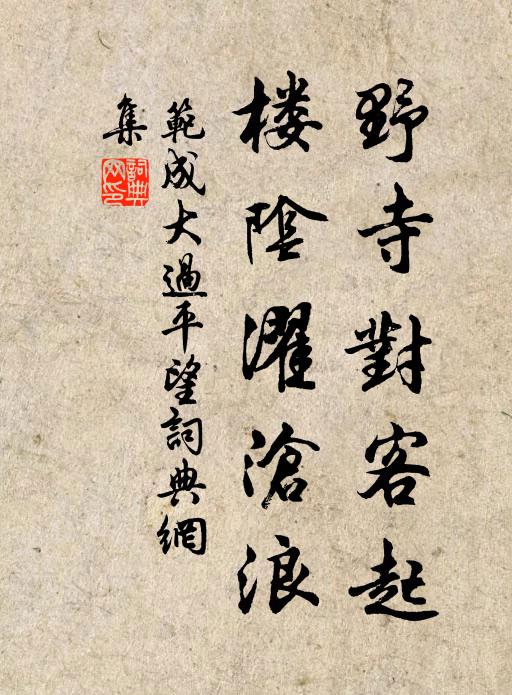 野寺對客起
楼陰濯滄浪
範成大過平望詞典網
集
詞典网印